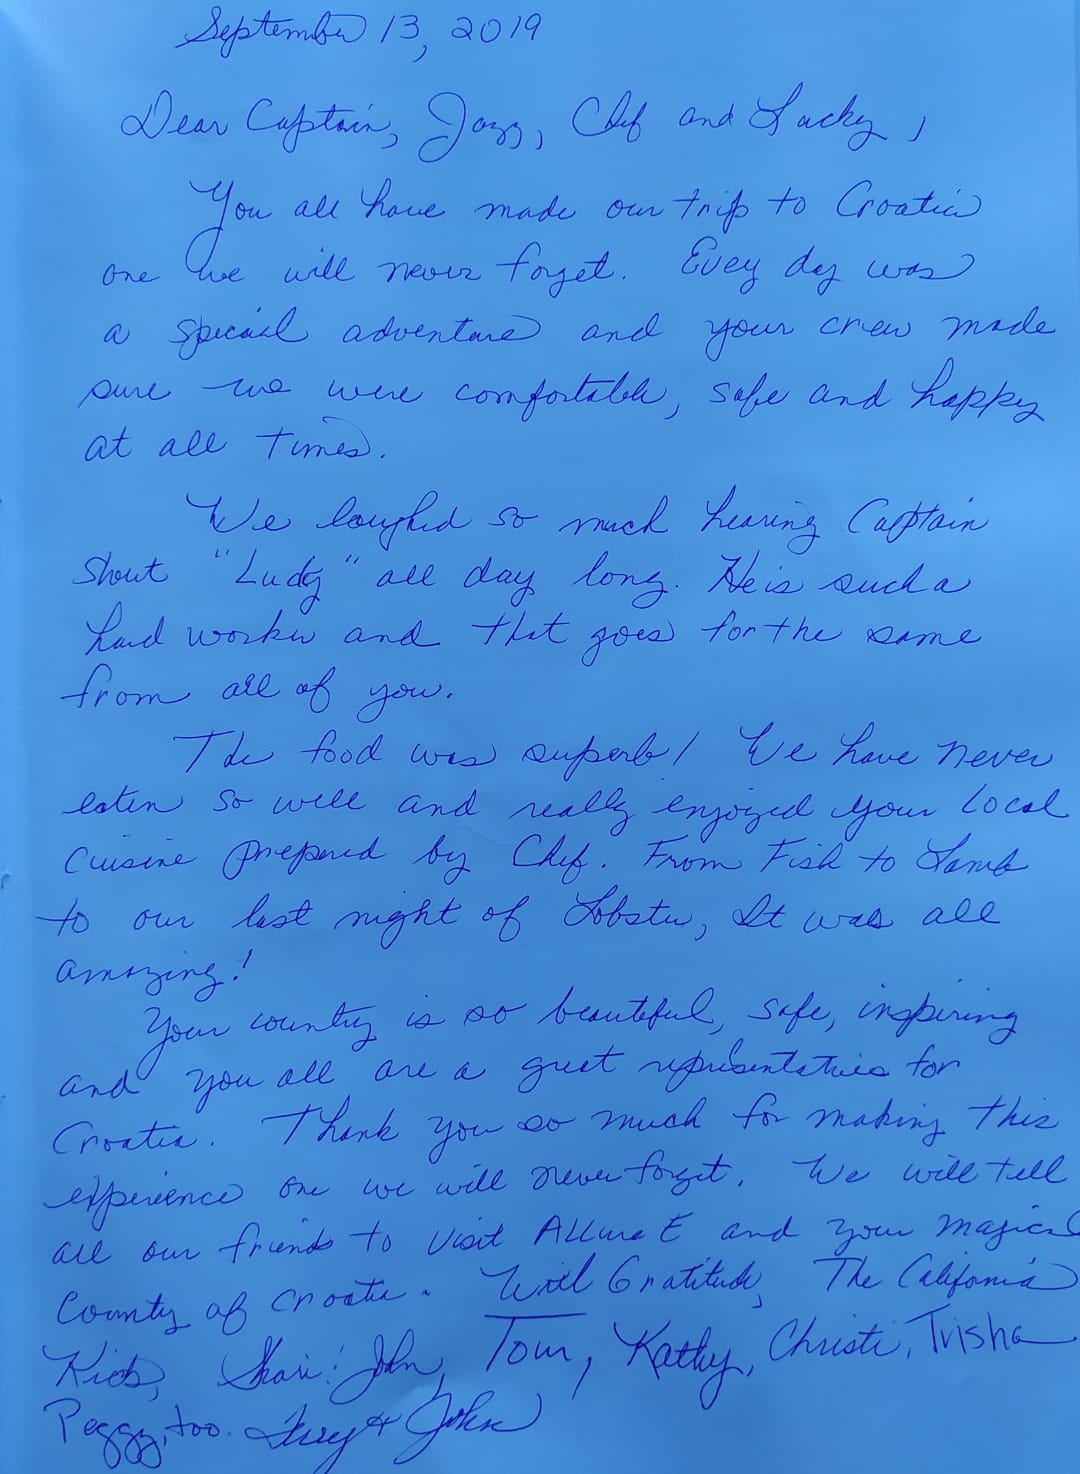 September 13, 2019
Dear Captain, Jozz, Chef and Lucky,
You all have made our trip to Croatia
one we will never forget. Evey day was
a special adventure and your crew made
sure we were comfortable, safe and happy
at all times.
We laughed so much hearing Captain
shout "Lucky" all day long. He is such a
hard worker and that goes for the same
from all of you.
The food was superb! We have never
eaten so well and really enjoyed your local
cuisine prepared by Chef. From Fish to Lamb
to our last night of Lobster, It was all
amazing!
Your country is so beautiful, safe, inspiring
and you all are a great representatives for
Croatia. Thank you so much for making this
experience one we will never forget. We will tell
all our friends to visit Allure E and your magical
County of Croatia. With Gratitude, The California
Kids, Shari! John, Tom, Kathy, Christi, Trisha
Peggy, too. Terry & John